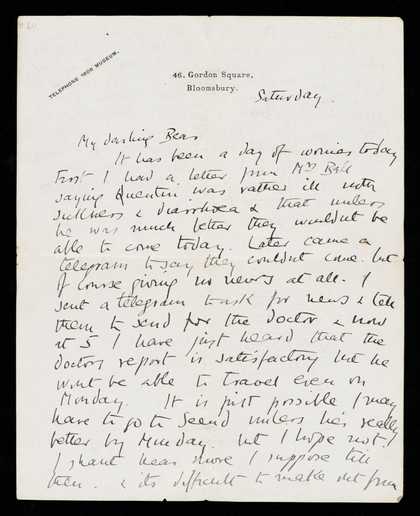 TELEPHONE 1608 MUSEUM.
46, Gordon Square,
Bloomsbury.
Saturday.
My darling Bear
It has been a day of worries today
First I had a letter from Mrs Bell
saying Quentin was rather ill with
sickness & diarrhoea & that unless
he was much better they wouldnt be
able to come today. Later came a
telegram to say they couldnt come. but
of course giving no news at all. I
sent a telegram to ask for news & tell
them to send for the doctor & now
at 5 I have just heard that the
doctors report is satisfactory but he
wont be able to travel even on
Monday. It is just possible I may
have to go to Seend unless he's really
better by Monday. but I hope not.
I shant hear more I suppose till
then. & its difficult to make out from